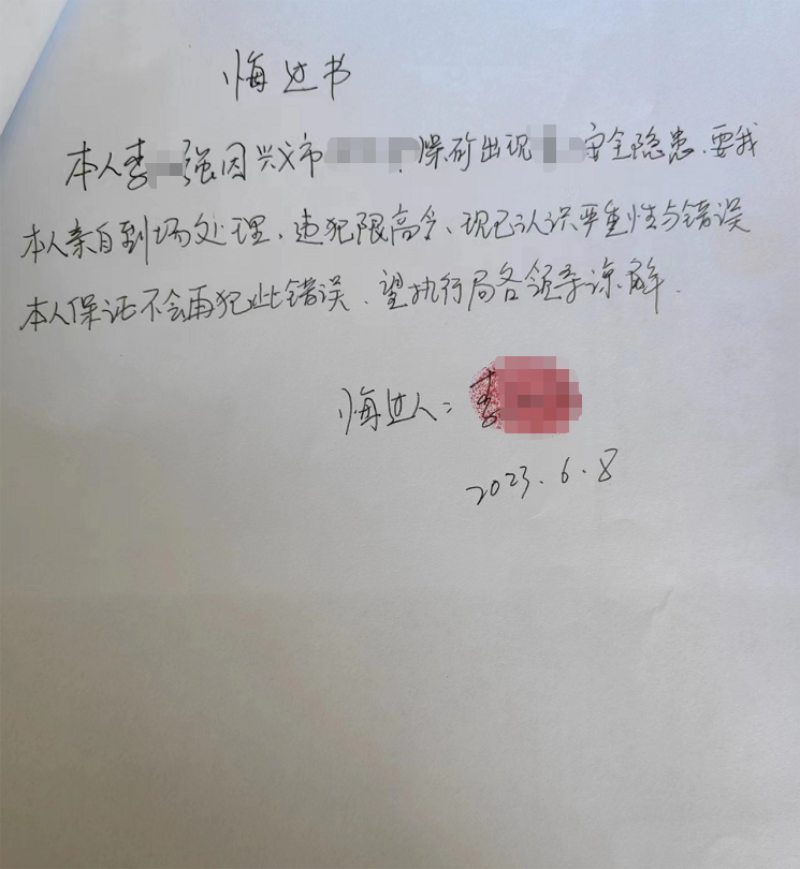 悔过书
本人李强因兴义市煤矿出现安全隐患、要我
本人亲自到场处理、违犯限高令、现已认识严重性与错误
本人保证不会再犯此错误、望执行局各领导谅解.
悔过人：李
2023.6.8